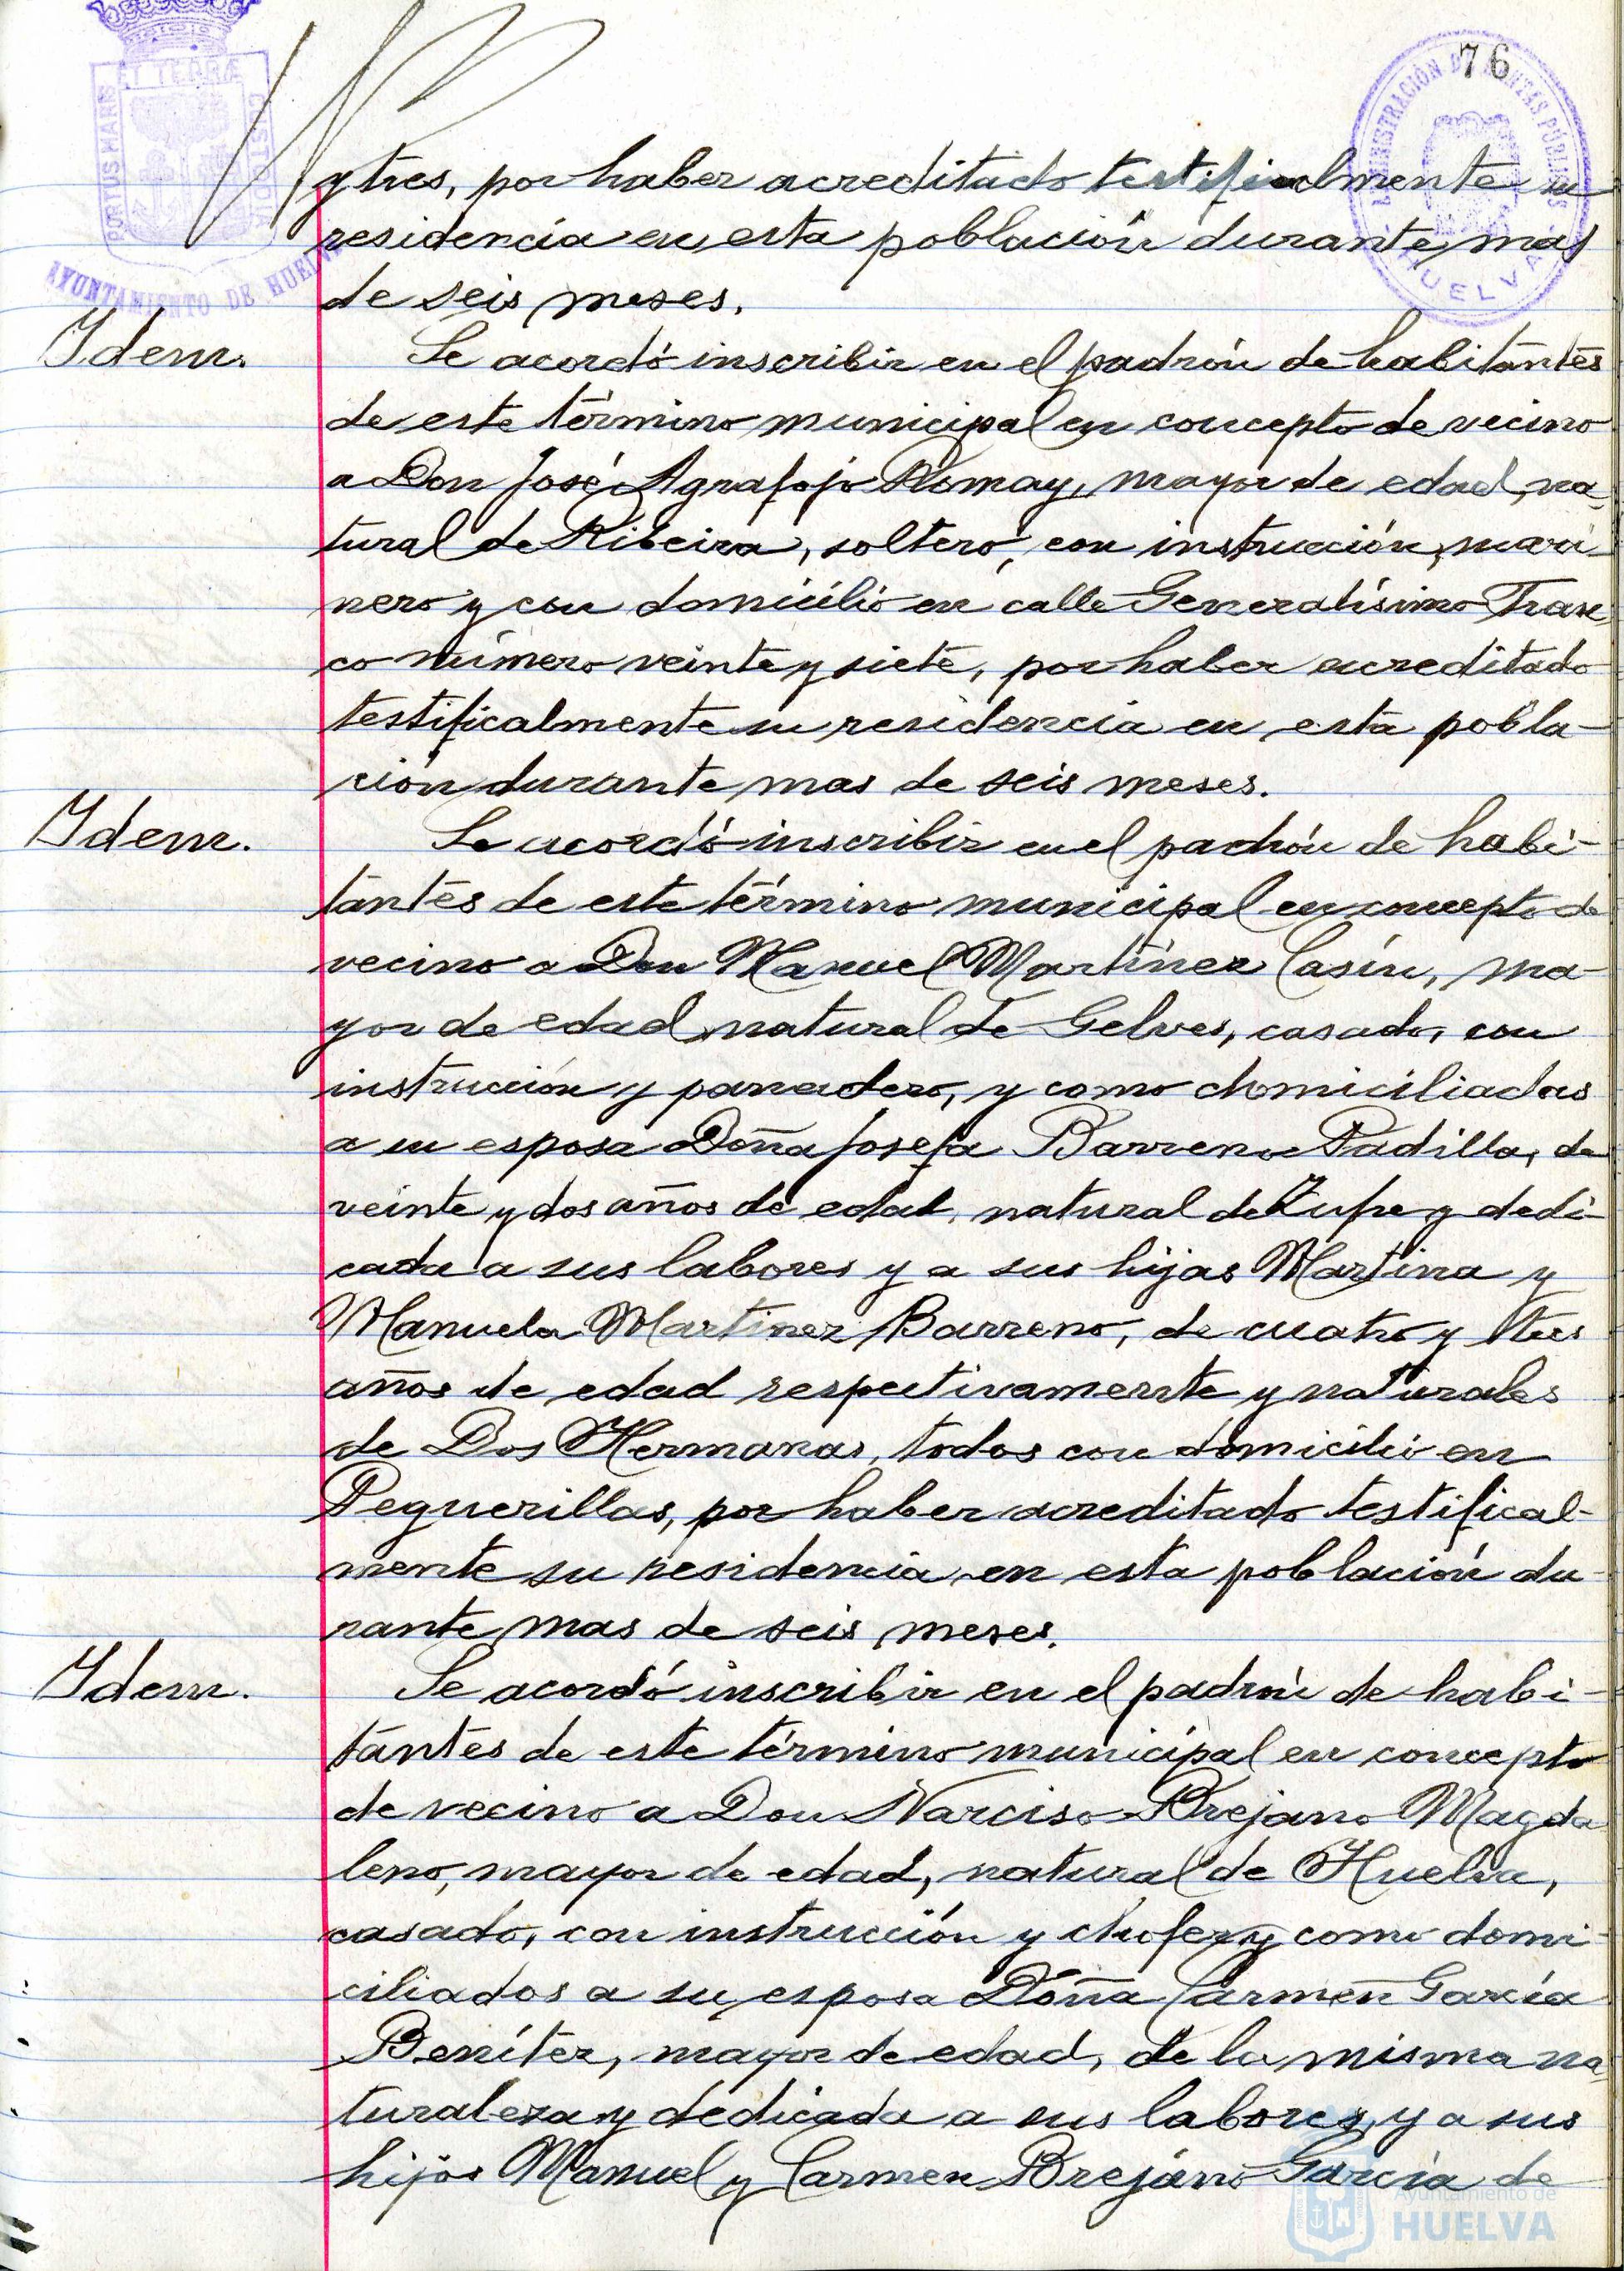 76
PORTUS MARIS ET TERRÆ CUSTODIA
AYUNTAMIENTO DE HUELVA
ADMINISTRACIÓN DE RENTAS PÚBLICAS
HUELVA
y tres, por haber acreditado testificalmente su
residencia en esta población durante mas
de seis meses.
Idem.
Se acordó inscribir en el padrón de habitantes
de este término municipal en concepto de vecino
a Don José Agrafojo Romay, mayor de edad, na-
tural de Ribeira, soltero, con instrucción, mari-
nero y con domicilio en calle Generalísimo Fran
co número veinte y siete, por haber acreditado
testificalmente su residencia en esta pobla-
ción durante mas de seis meses.
Idem.
Se acordó inscribir en el padrón de habi-
tantes de este término municipal en concepto de
vecino a Don Manuel Martínez Casín, ma-
yor de edad, natural de Gelves, casado, con
instrucción y panadero, y como domiciliadas
a su esposa Doña Josefa Barreno Padilla, de
veinte y dos años de edad, natural de Zufre y dedi-
cada a sus labores y a sus hijas Martina y
Manuela Martinez Barreno, de cuatro y tres
años de edad respectivamente y naturales
de Dos Hermanas, todos con domicilio en
Peguerillas, por haber acreditado testifical-
mente su residencia en esta población du-
rante mas de seis meses.
Idem.
Se acordó inscribir en el padrón de habi-
tantes de este término municipal en concepto
de vecino a Don Narciso Brejano Magda
leno, mayor de edad, natural de Huelva,
casado, con instrucción y chofer y como domi-
ciliados a su esposa Doña Carmen García
Benítez, mayor de edad, de la misma na
turaleza y dedicada a sus labores, y a sus
hijos Manuel y Carmen Brejano García de
Ayuntamiento de
HUELVA